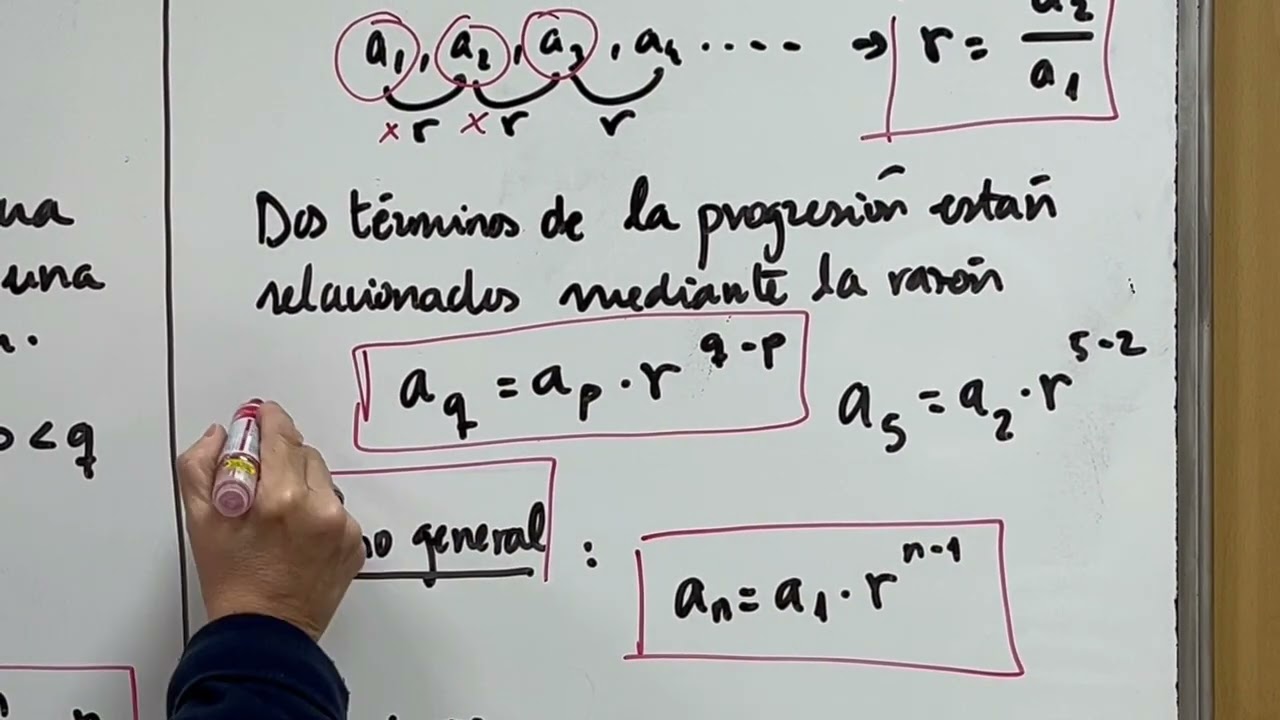 a₁, a₂, a₃, a₄ ..... ⇒ r = a₂/a₁
× r × r r
Dos términos de la progresión están
relacionados mediante la razón
a_q = a_p · r^(q-p) a₅ = a₂ · r^(5-2)
general : aₙ = a₁ · r^(n-1)
una
< q